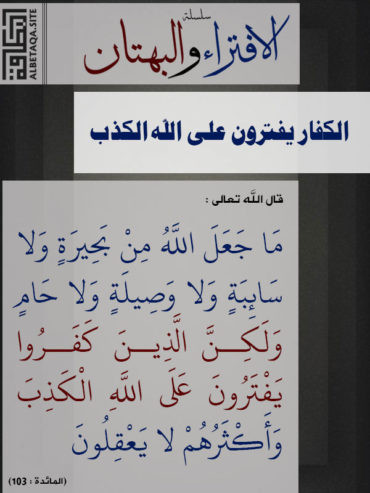 سلسلة
الافتراء والبهتان
البطاقة
ALBETAQA.SITE
الكفار يفترون على الله الكذب
قال الله تعالى :
مَا جَعَلَ اللَّهُ مِنْ بَحِيرَةٍ وَلَا
سَائِبَةٍ وَلَا وَصِيلَةٍ وَلَا حَامٍ
وَلَكِنَّ الَّذِينَ كَفَرُوا
يَفْتَرُونَ عَلَى اللَّهِ الْكَذِبَ
وَأَكْثَرُهُمْ لَا يَعْقِلُونَ
(المائدة : 103)